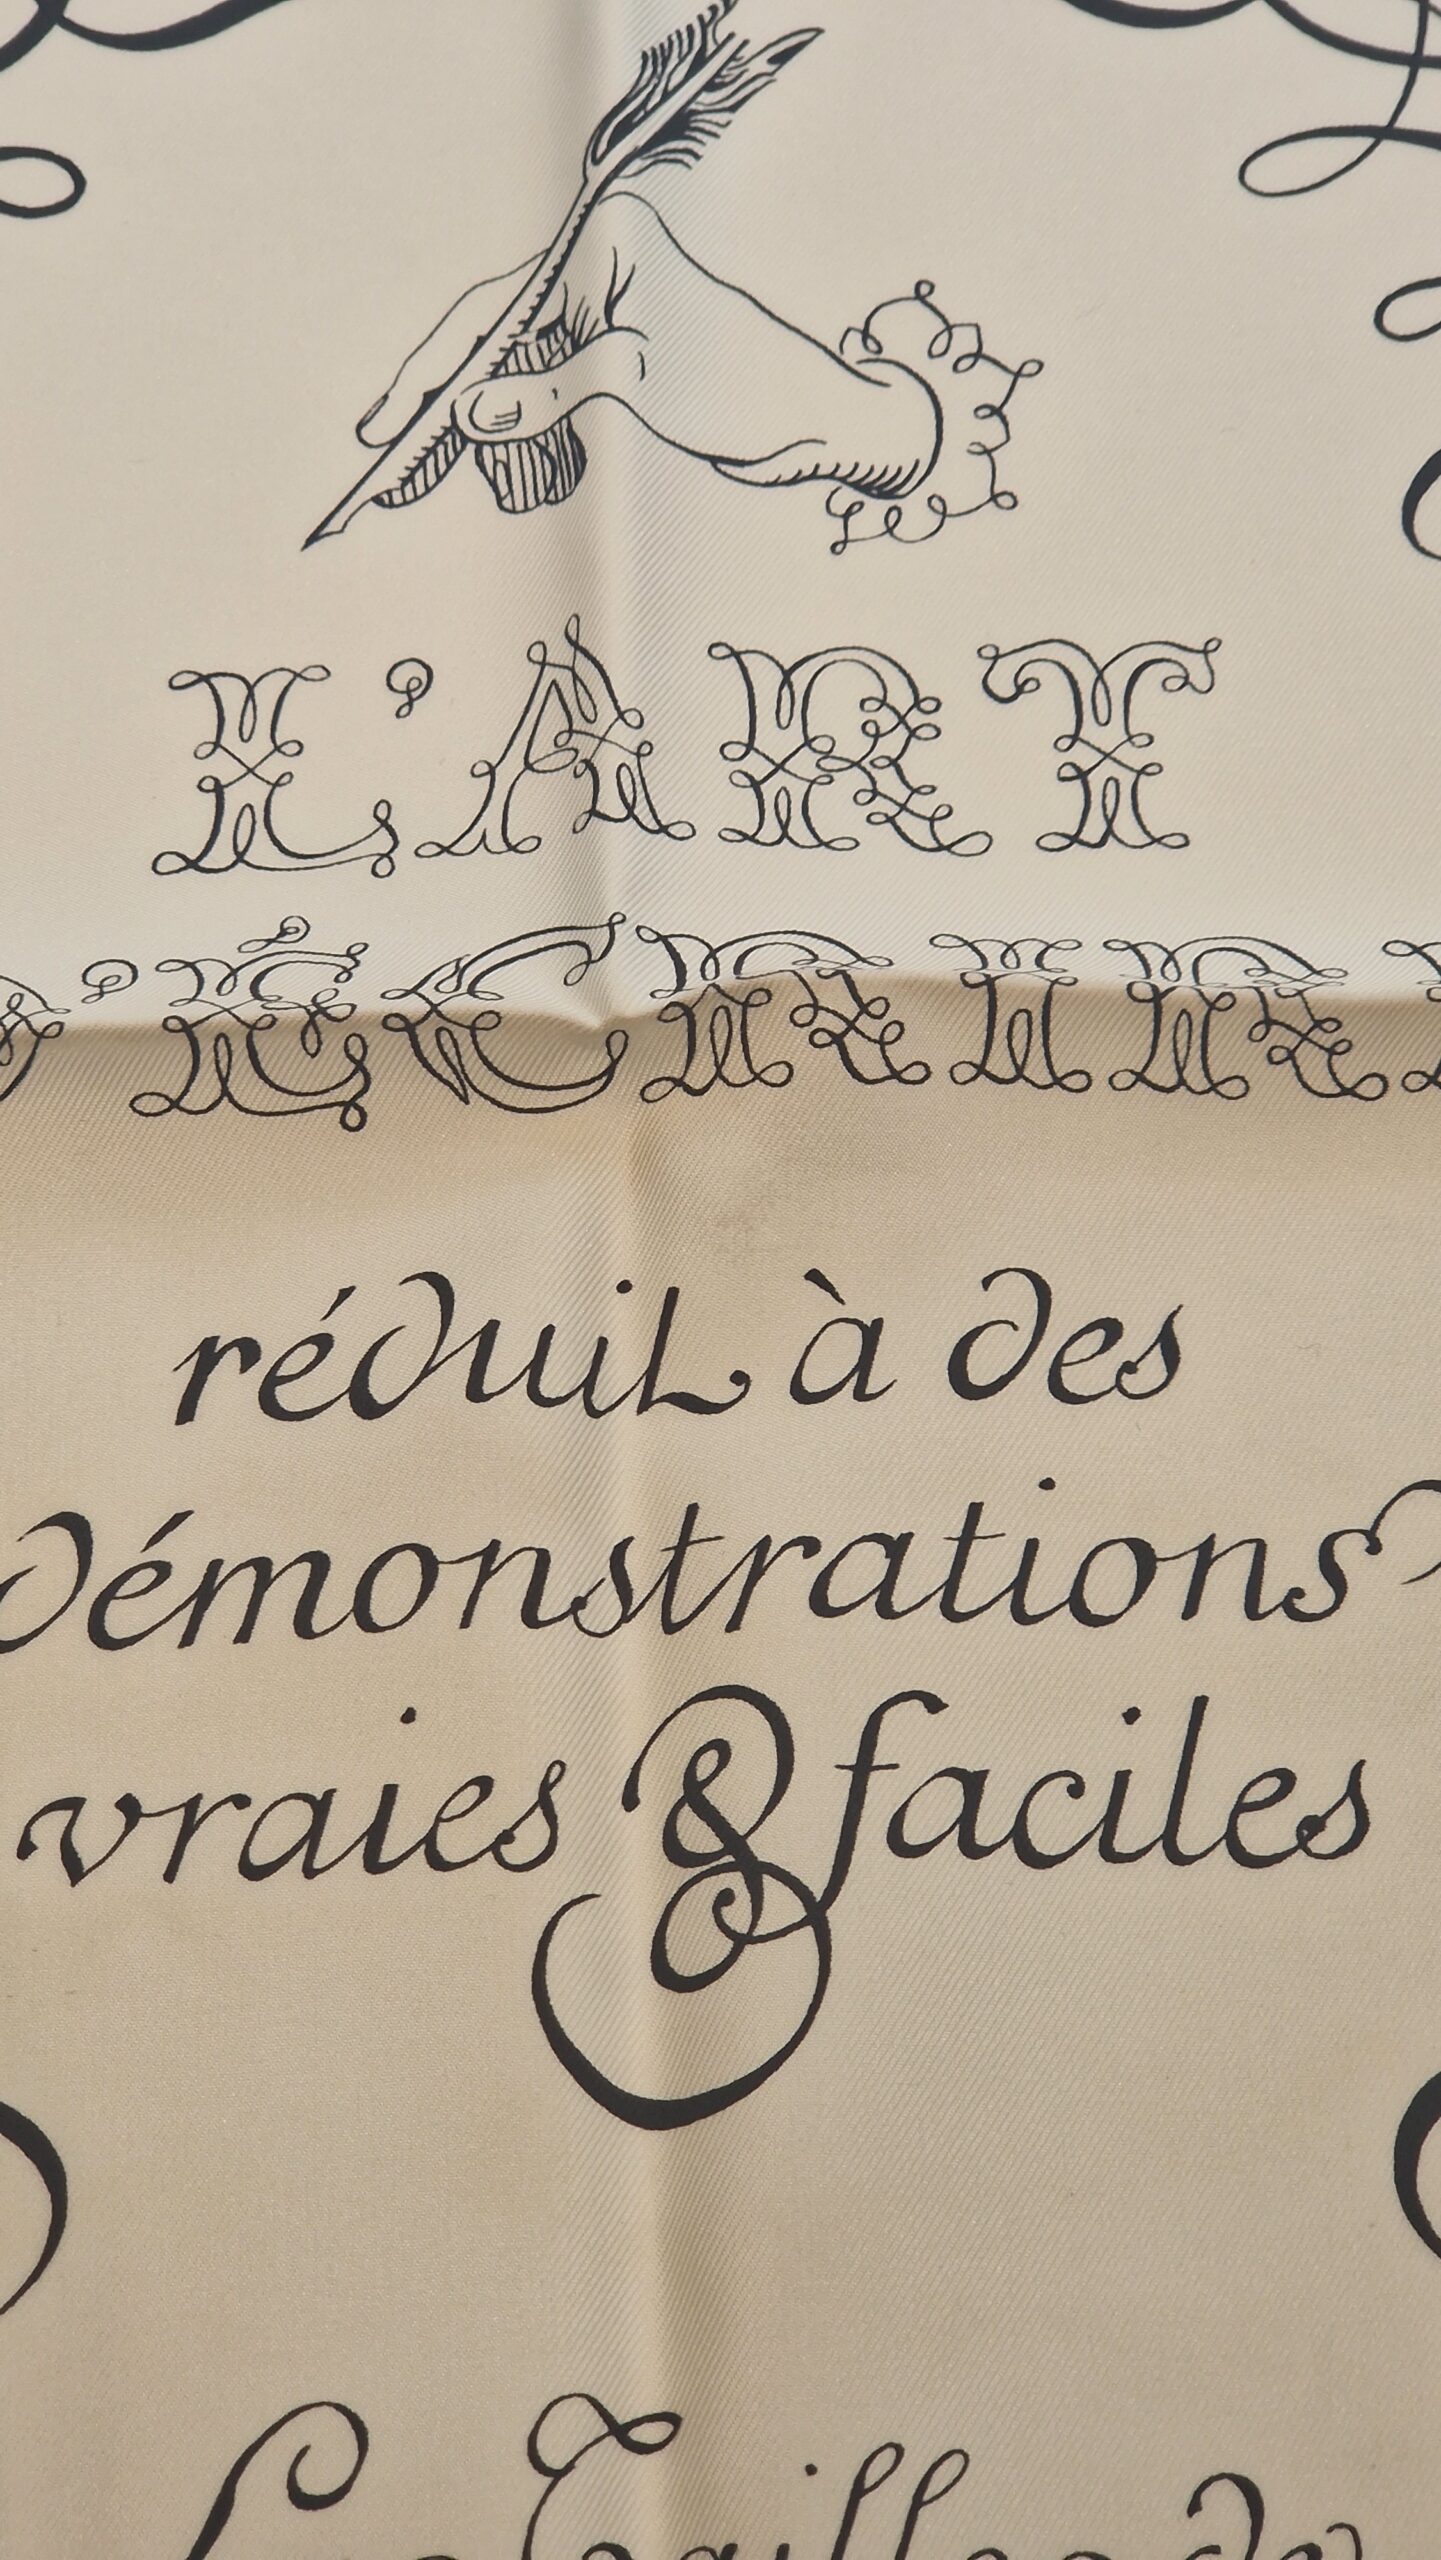 L'ART
D'ÉCRIRE
réduit à des
démonstrations
vraies & faciles
La Taille de